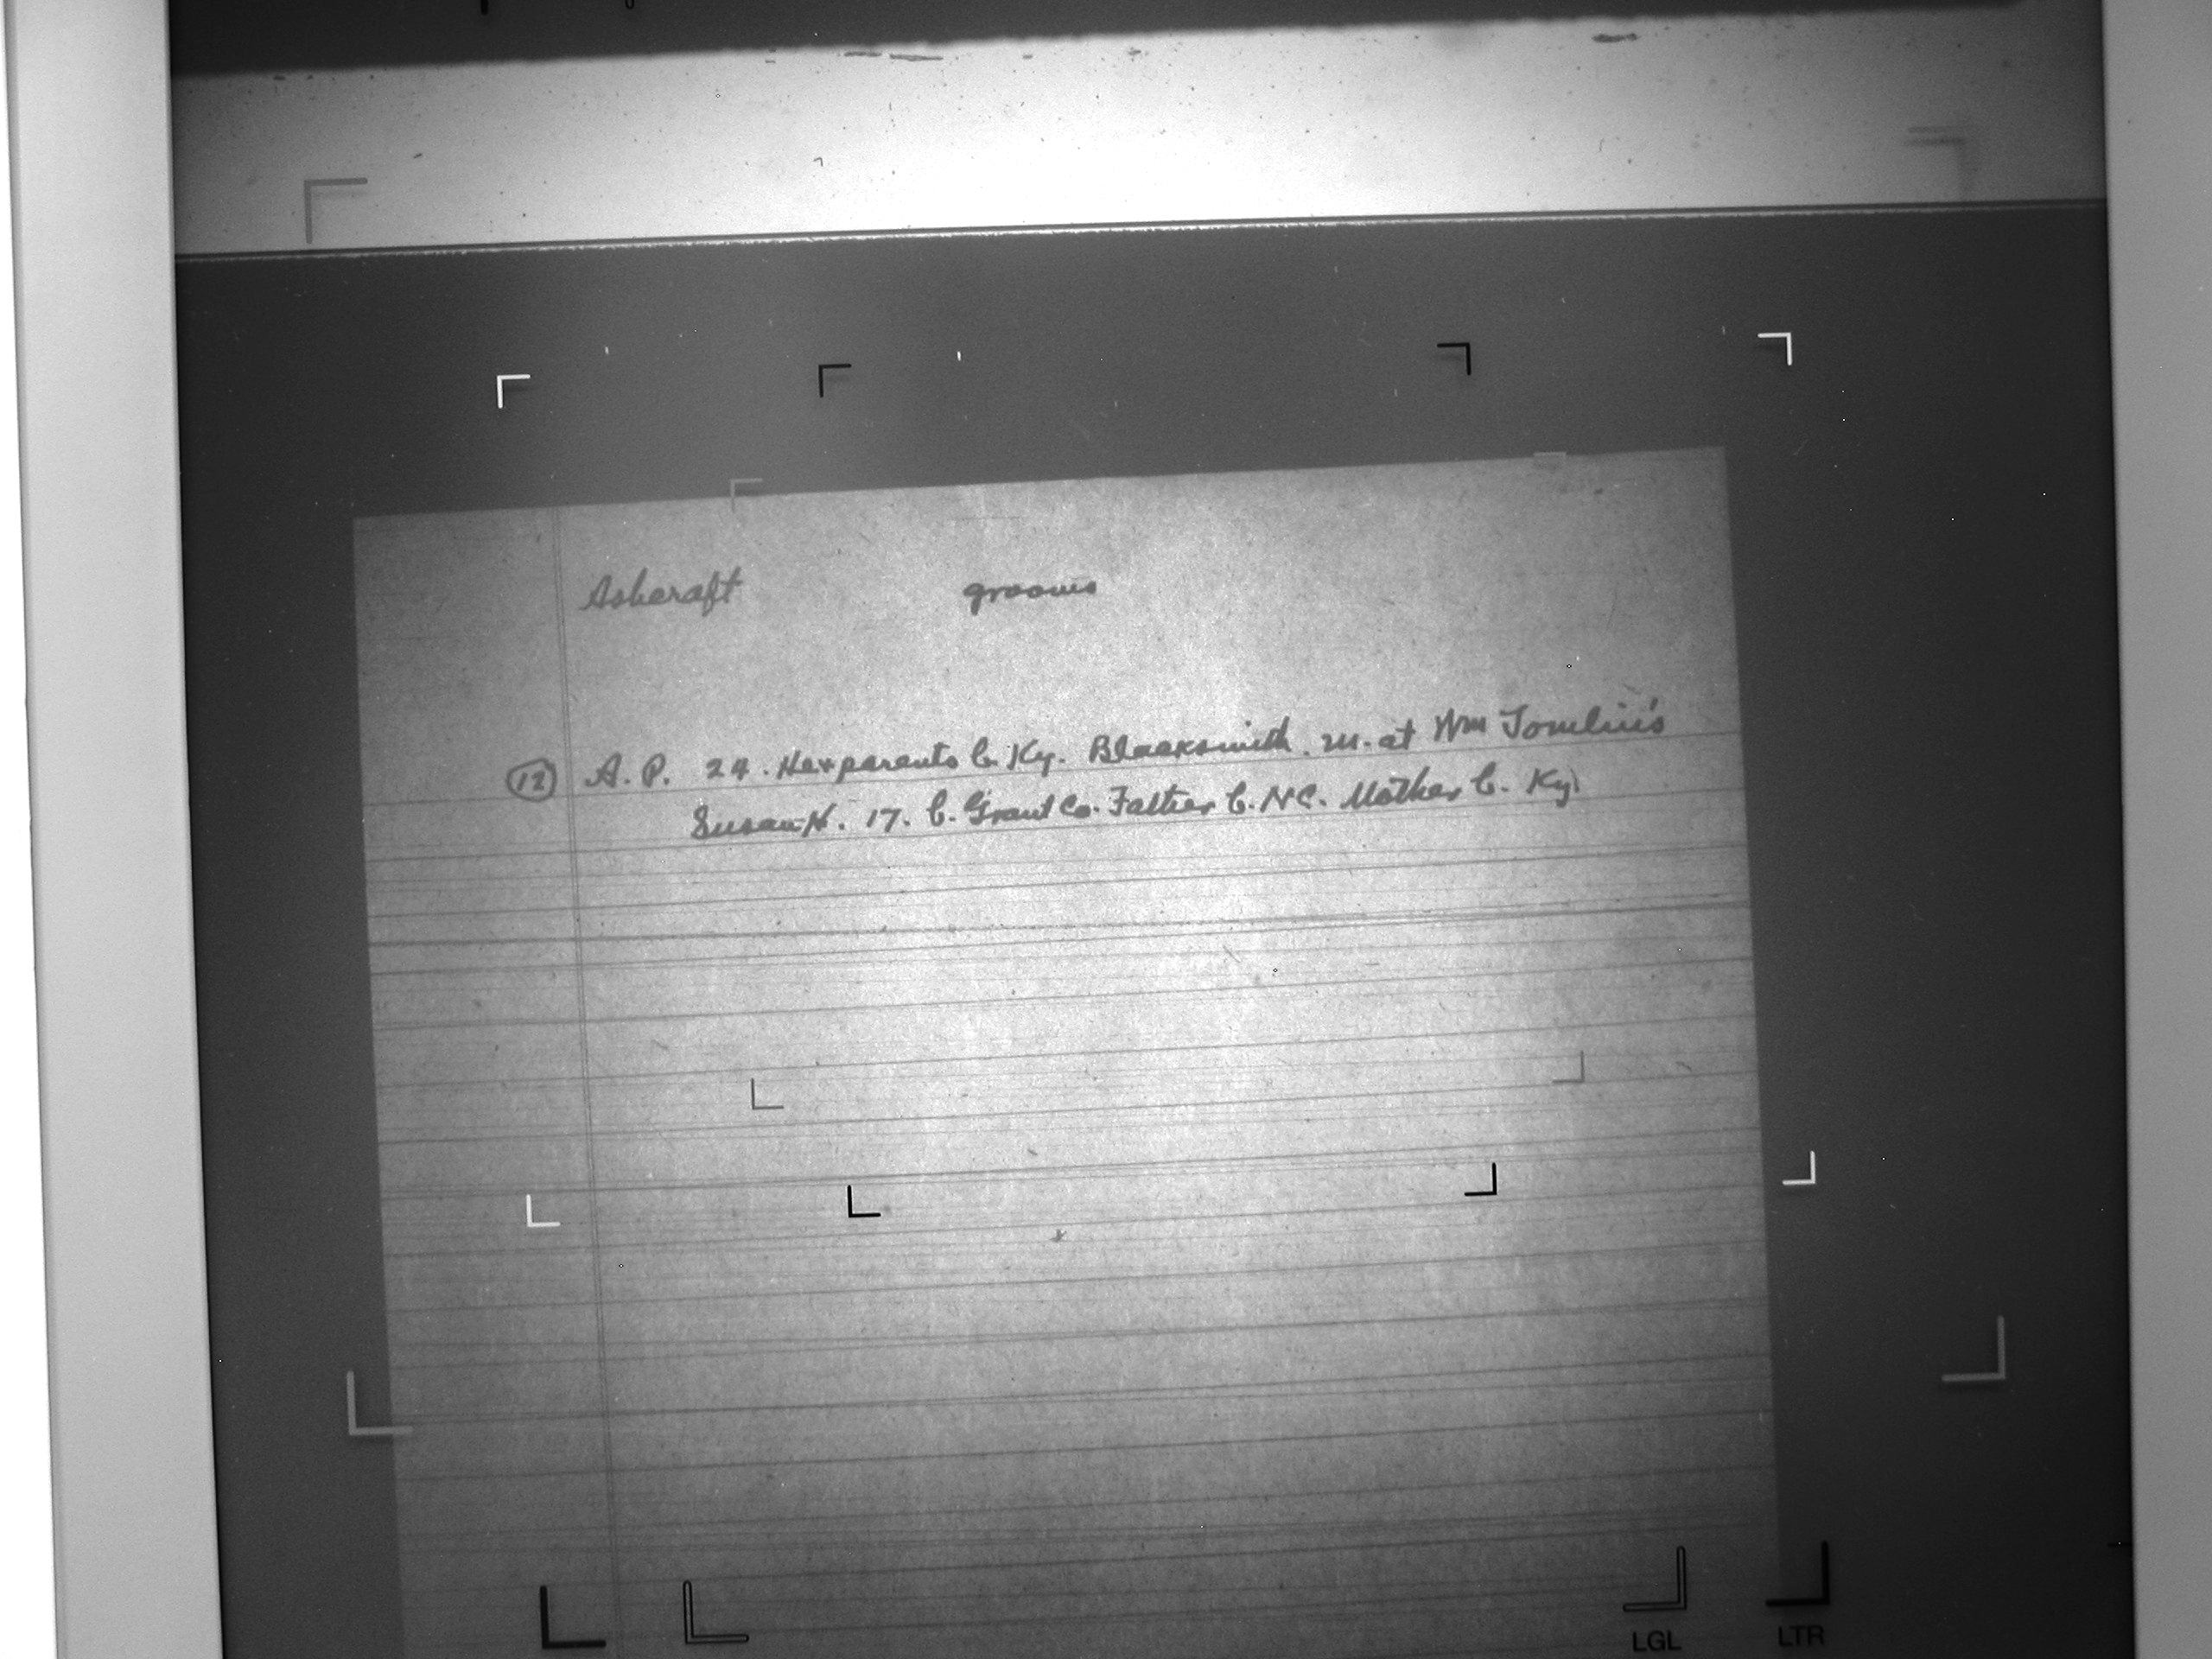 Ashcraft grooms
(12) A. P. 24. He + parents b. Ky. Blacksmith. m. at Wm Tomlin's
Susan H. 17. b. Grant Co. Father b. NC. Mother b. Ky.
LGL LTR